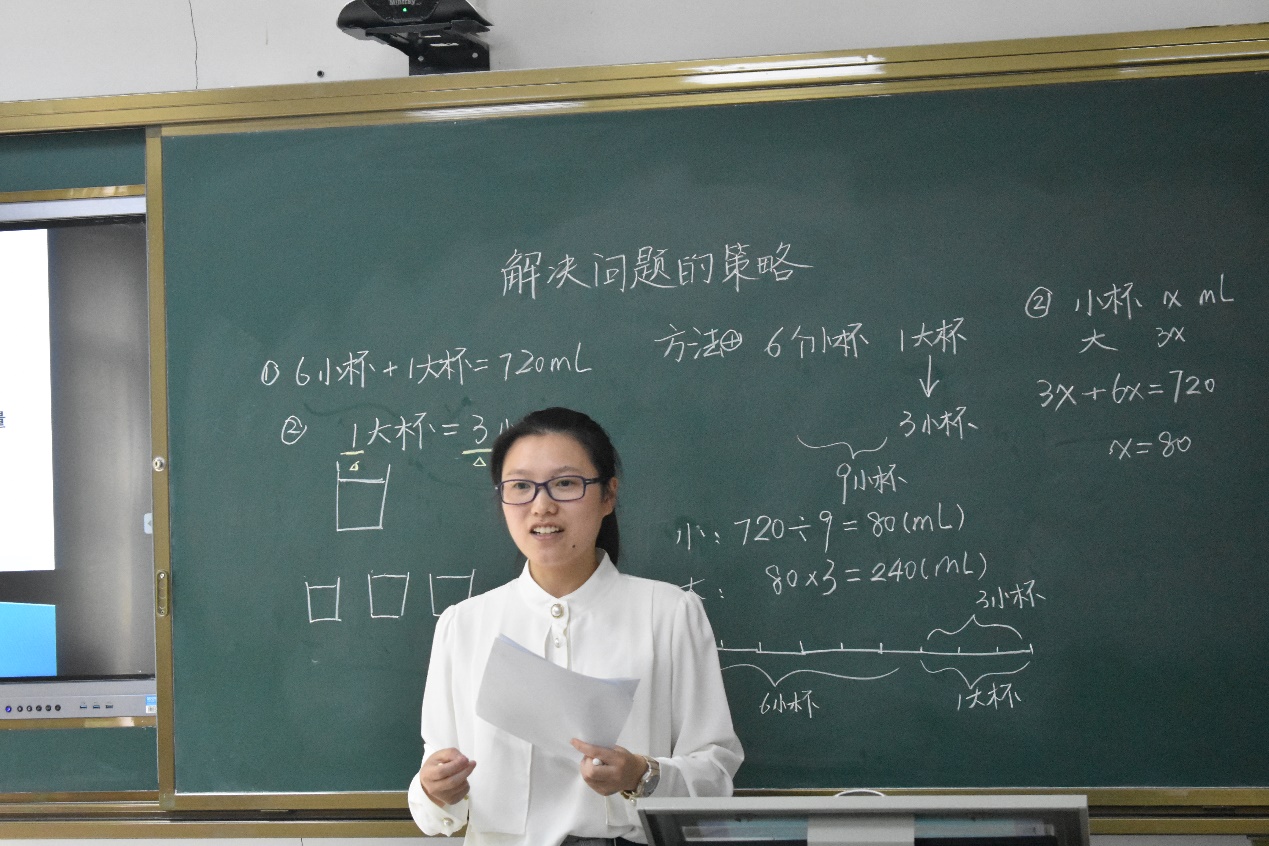 解决问题的策略
① 6小杯+1大杯=720mL
② 1大杯=3小
方法① 6个小杯 1大杯
3小杯
9小杯
小: 720÷9=80(mL)
大: 80×3=240(mL)
3小杯
6小杯
1大杯
② 小杯 x mL
大 3x
3x+6x=720
x=80
量